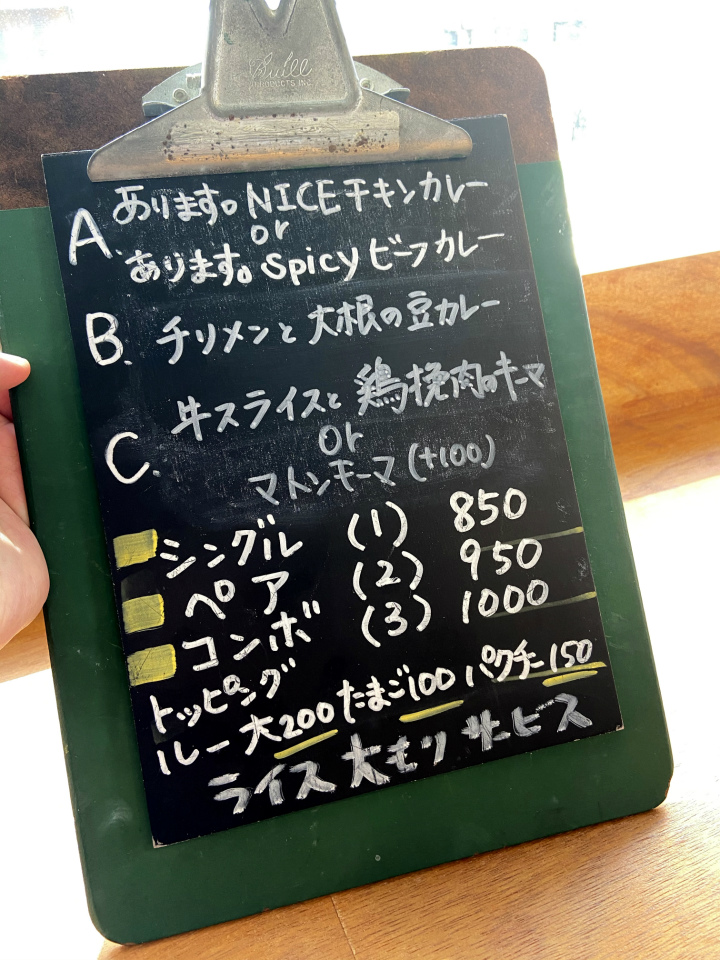 PRODUCTS INC.
A. あります。NICEチキンカレー
or
あります。Spicyビーフカレー
B. チリメンと大根の豆カレー
C. 牛スライスと鶏挽肉のキーマ
or
マトンキーマ(+100)
シングル (1) 850
ペア (2) 950
コンボ (3) 1000
トッピング
ルー大200 たまご100 パクチー150
ライス大もりサービス